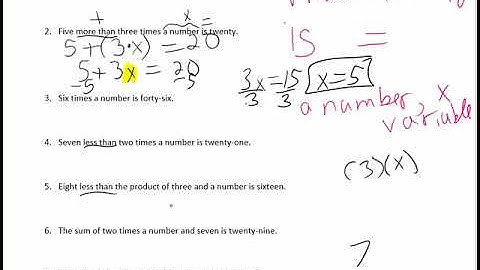 + x =
2. Five more than three times a number is twenty.
5+(3·x) = 20
5+3x = 20
-5 -5
3x = 15 x=5
3 3
is =
a number, x
variable
3. Six times a number is forty-six.
4. Seven less than two times a number is twenty-one.
(3)(x)
5. Eight less than the product of three and a number is sixteen.
6. The sum of two times a number and seven is twenty-nine.
7